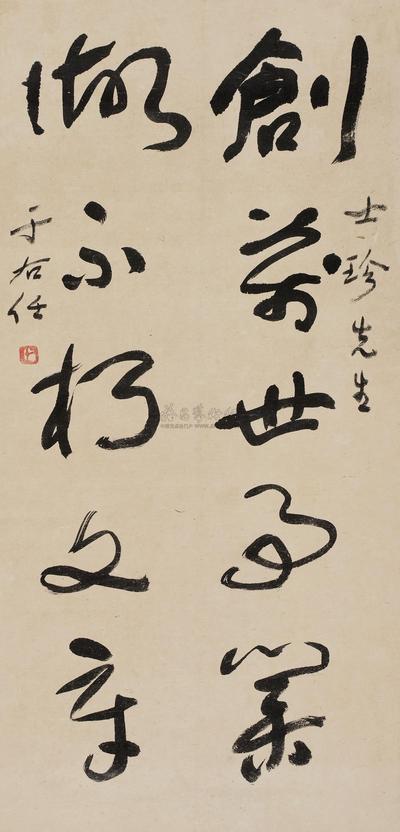 士珍先生
創萬世事業
做不朽文章
于右任